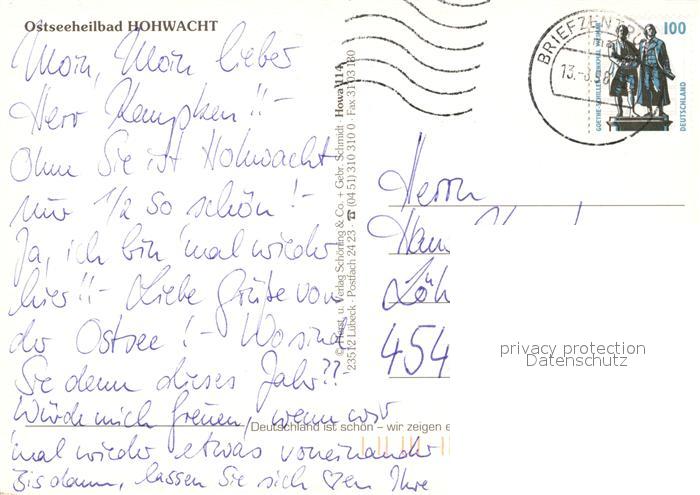 Ostseeheilbad HOHWACHT
Moin, Moin lieber
Herr Kempken!!-
Ohne Sie ist Hohwacht
nur 1/2 so schön!-
Ja, ich bin mal wieder
hier!!- Liebe Grüße von
der Ostsee!- Wo sind
Sie denn dieses Jahr??
Würde mich freuen, wenn wir
mal wieder etwas voneinander
Bis dann, lassen Sie sich ♡en Ihre
© Horst u. Verlag Schöning & Co. + Gebr. Schmidt · Howa 114
23512 Lübeck · Postfach 24 23 · ☎ (04 51) 310 310 0 · Fax 31 03 180
Deutschland ist schön – wir zeigen e
BRIEFZENTRU
13.-8.98
100
GOETHE-SCHILLER-DENKMAL WEIMAR
DEUTSCHLAND
Herrn
Löh
454
privacy protection
Datenschutz